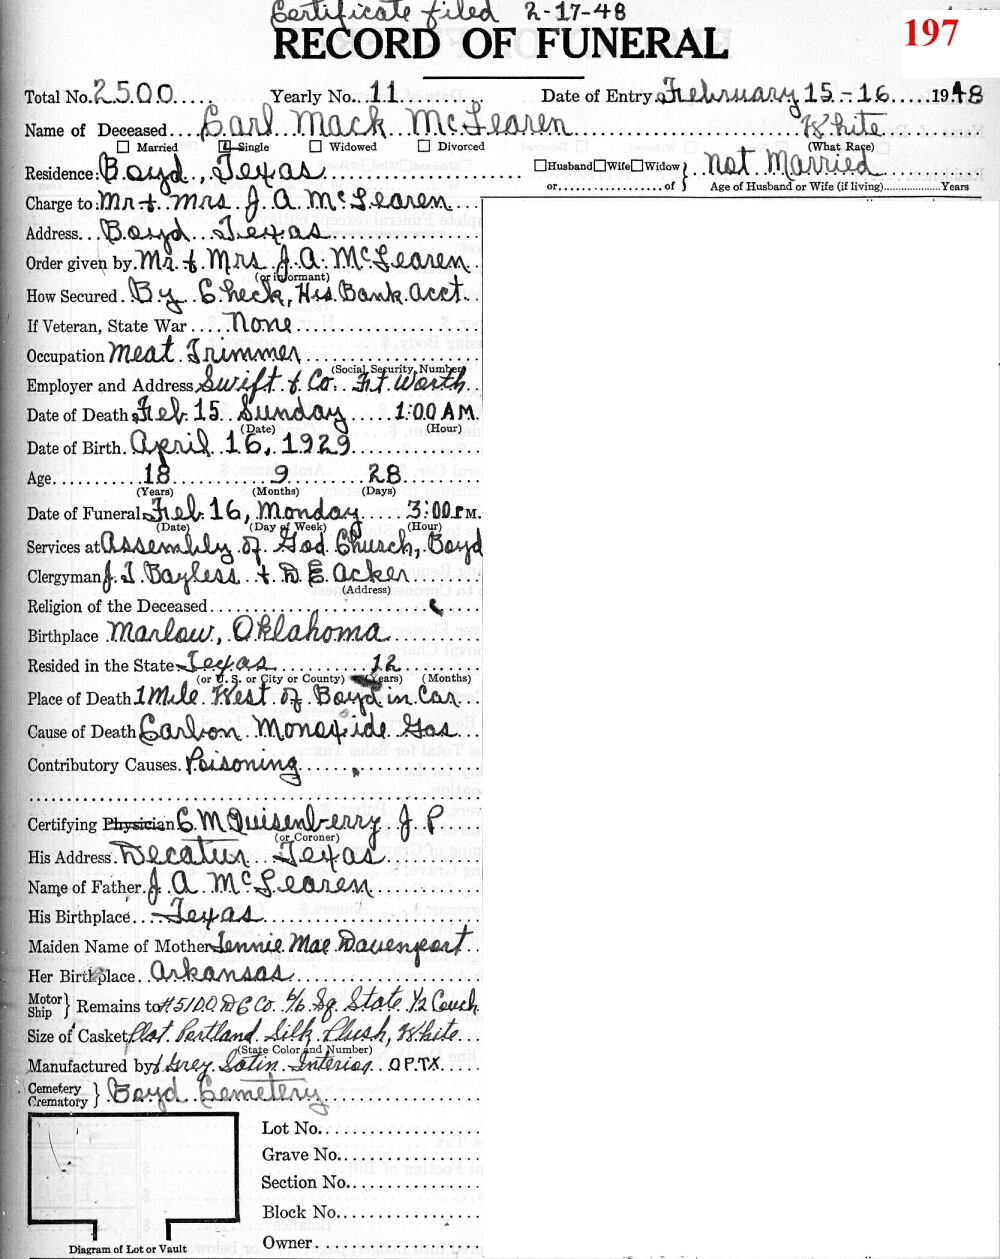 Certificate filed 2-17-48
197
RECORD OF FUNERAL
Total No. 2500 Yearly No. 11 Date of Entry February 15-16 1948
Name of Deceased Earl Mack McLearen White
☐ Married ☐ Single ☐ Widowed ☐ Divorced (What Race)
Residence: Boyd, Texas ☐Husband☐Wife☐Widow} Not Married
or..............of Age of Husband or Wife (if living)..............Years
Charge to: Mr + Mrs J. A. McLearen
Address Boyd Texas
Order given by Mr. + Mrs J. A. McLearen
(or informant)
How Secured By Check, His Bank Acct.
If Veteran, State War None
Occupation Meat Trimmer
(Social Security Number)
Employer and Address Swift & Co. Ft. Worth
Date of Death Feb 15 Sunday 1:00 A.M.
(Date) (Hour)
Date of Birth April 16, 1929
Age 18 9 28
(Years) (Months) (Days)
Date of Funeral Feb 16, Monday 3:00 P.M.
(Date) (Day of Week) (Hour)
Services at Assembly of God Church, Boyd
Clergyman J. T. Bayless + D E Acker
(Address)
Religion of the Deceased
Birthplace Marlow, Oklahoma
Resided in the State Texas 12
(or U. S. or City or County) (Years) (Months)
Place of Death 1 Mile West of Boyd in Car
Cause of Death Carbon Monoxide Gas
Contributory Causes Poisoning
Certifying Physician C. M Quisenberry J P
(or Coroner)
His Address Decatur Texas
Name of Father J A McLearen
His Birthplace Texas
Maiden Name of Mother Jennie Mae Davenport
Her Birthplace Arkansas
Motor Ship } Remains to #5100 D C Co. 6/6 Sq. State 1/2 Couch
Size of Casket flat Portland Silk Plush, White
(State Color and Number)
Manufactured by Grey Satin Interior OPTX
Cemetery Crematory } Boyd Cemetery
Lot No.
Grave No.
Section No.
Block No.
Owner
Diagram of Lot or Vault